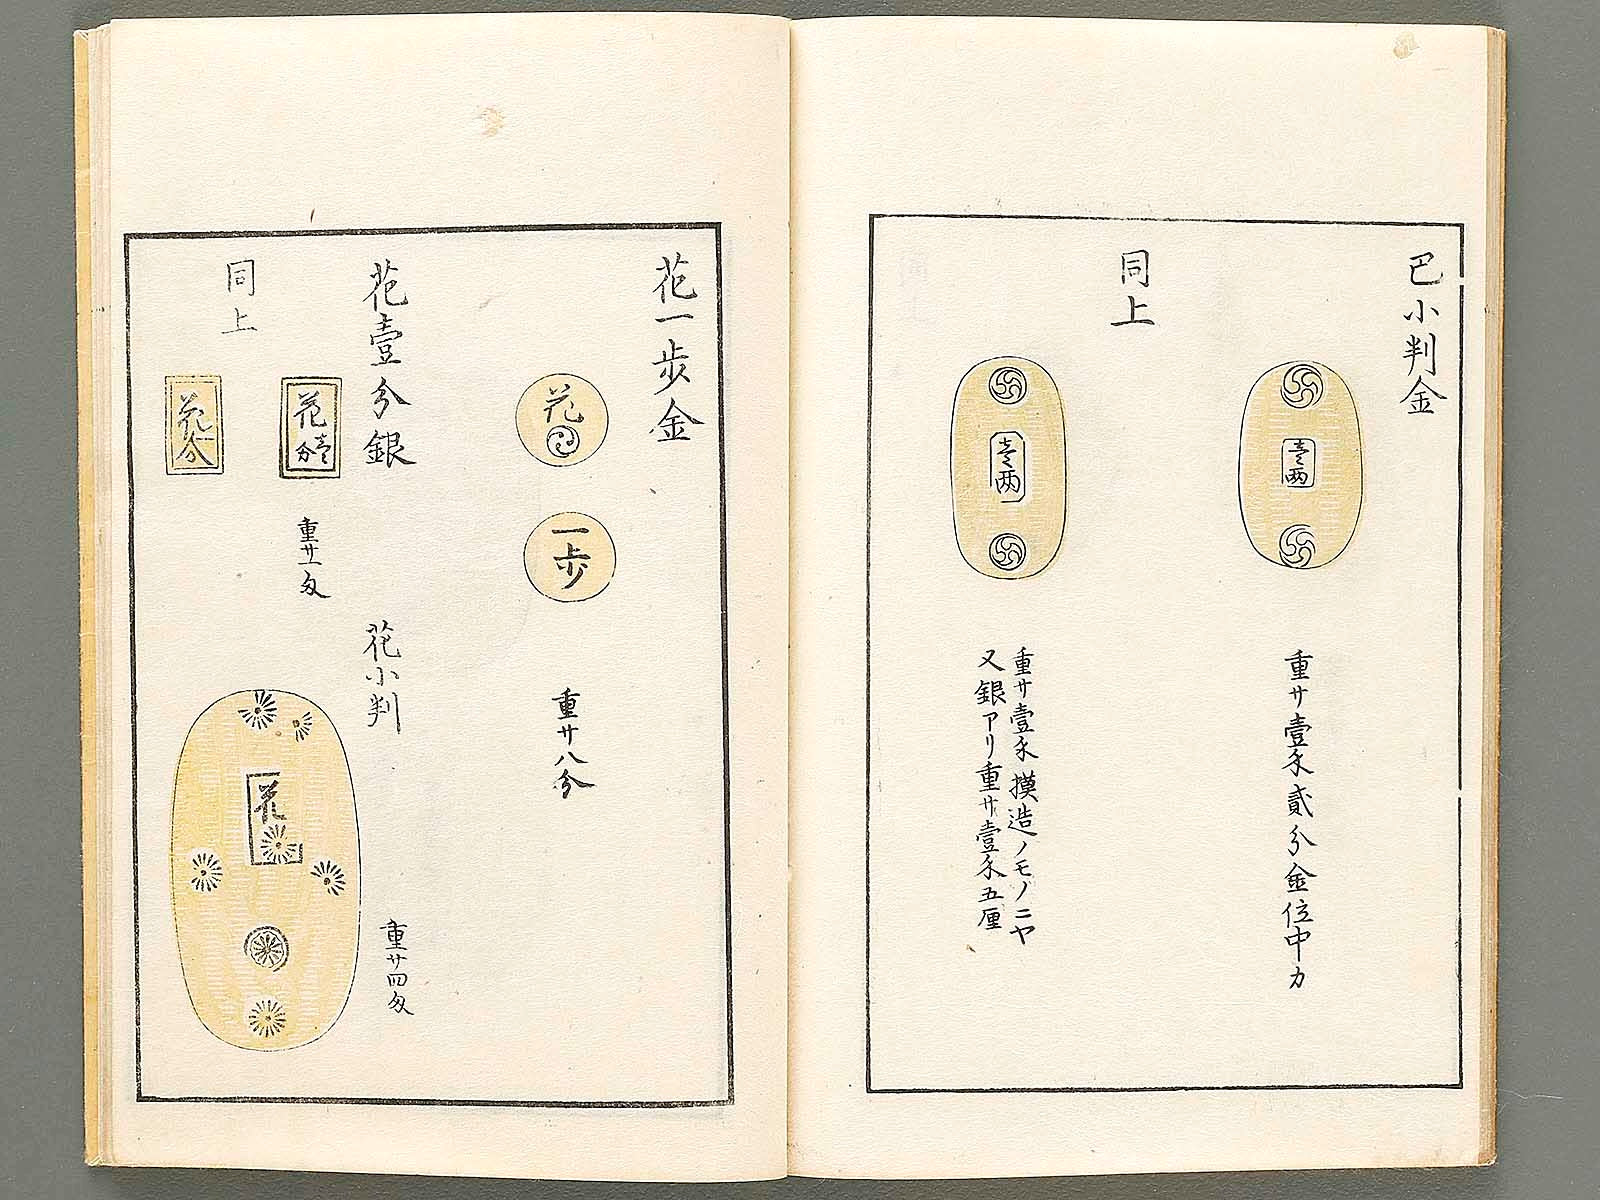 巴小判金
壹两
重サ壹匁貳分金位中カ
同上
壹两
重サ壹匁摸造ノモノニヤ
又銀アリ重サ壹匁五厘
花一歩金
花
一歩
重サ八分
花壹分銀
花壹分
重サ一匁
同上
花分
花小判
花
重サ四匁